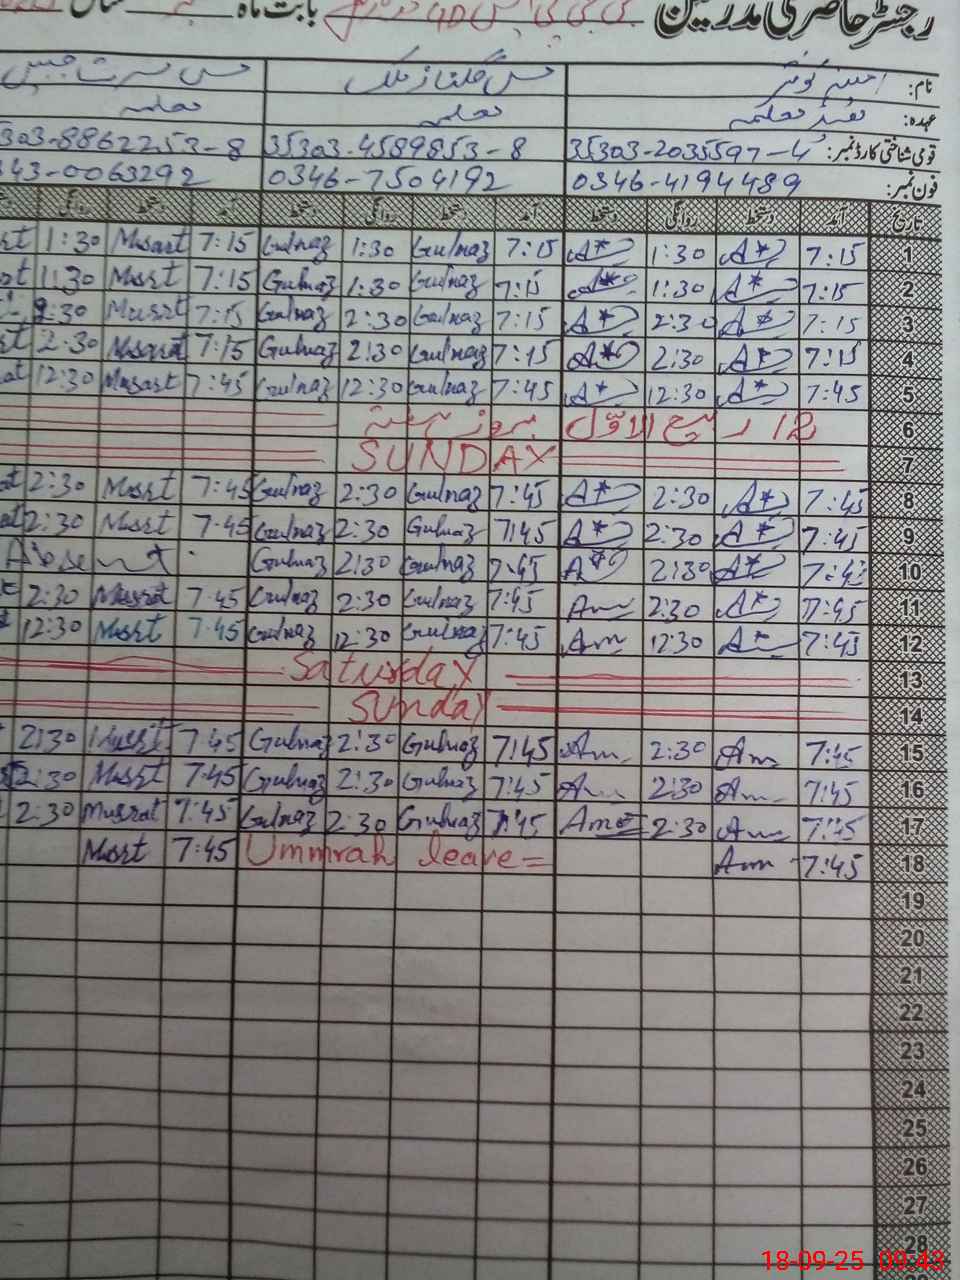 رجسٹر حاضری مدرسین بابت ماہ سال
نام:
عہدہ: معلمہ معلمہ
قومی شناختی کارڈ نمبر: 35303-2035597-4 35303-4589853-8 5303-8862253-8
فون نمبر: 0346-4194489 0346-7504192 343-0063292
تاریخ آمد دستخط روانگی دستخط آمد دستخط روانگی دستخط آمد دستخط روانگی
1 7:15 A* 1:30 A* 7:15 Gulnaz 1:30 Gulnaz 7:15 Musart 1:30
2 7:15 A* 1:30 A* 7:15 Gulnaz 1:30 Gulnaz 7:15 Musrt 1:30
3 7:15 A* 2:30 A* 7:15 Gulnaz 2:30 Gulnaz 7:15 Musrt 2:30
4 7:15 A* 2:30 A* 7:15 Gulnaz 2:30 Gulnaz 7:15 Musarat 2:30
5 7:45 A* 12:30 A* 7:45 Gulnaz 12:30 Gulnaz 7:45 Musart 12:30
6 12 ربیع الاوّل بروز ہفتہ
7 SUNDAY
8 7:45 A* 2:30 A* 7:45 Gulnaz 2:30 Gulnaz 7:45 Musrt 2:30
9 7:45 A* 2:30 A* 7:45 Gulnaz 2:30 Gulnaz 7:45 Musrt 2:30
10 7:45 A* 2:30 A* 7:45 Gulnaz 2:30 Gulnaz Absent
11 7:45 A* 2:30 Am 7:45 Gulnaz 2:30 Gulnaz 7:45 Musrat 2:30
12 7:45 A* 12:30 Am 7:45 Gulnaz 12:30 Gulnaz 7:45 Musrt 12:30
13 Saturday
14 Sunday
15 7:45 Am 2:30 Am 7:45 Gulnaz 2:30 Gulnaz 7:45 Musrt 2:30
16 7:45 Am 2:30 Am 7:45 Gulnaz 2:30 Gulnaz 7:45 Musrt 2:30
17 7:45 Am 2:30 Am 7:45 Gulnaz 2:30 Gulnaz 7:45 Musrat 2:30
18 7:45 Am Ummrah leave= 7:45 Musrt
19
20
21
22
23
24
25
26
27
28
18-09-25 09:43